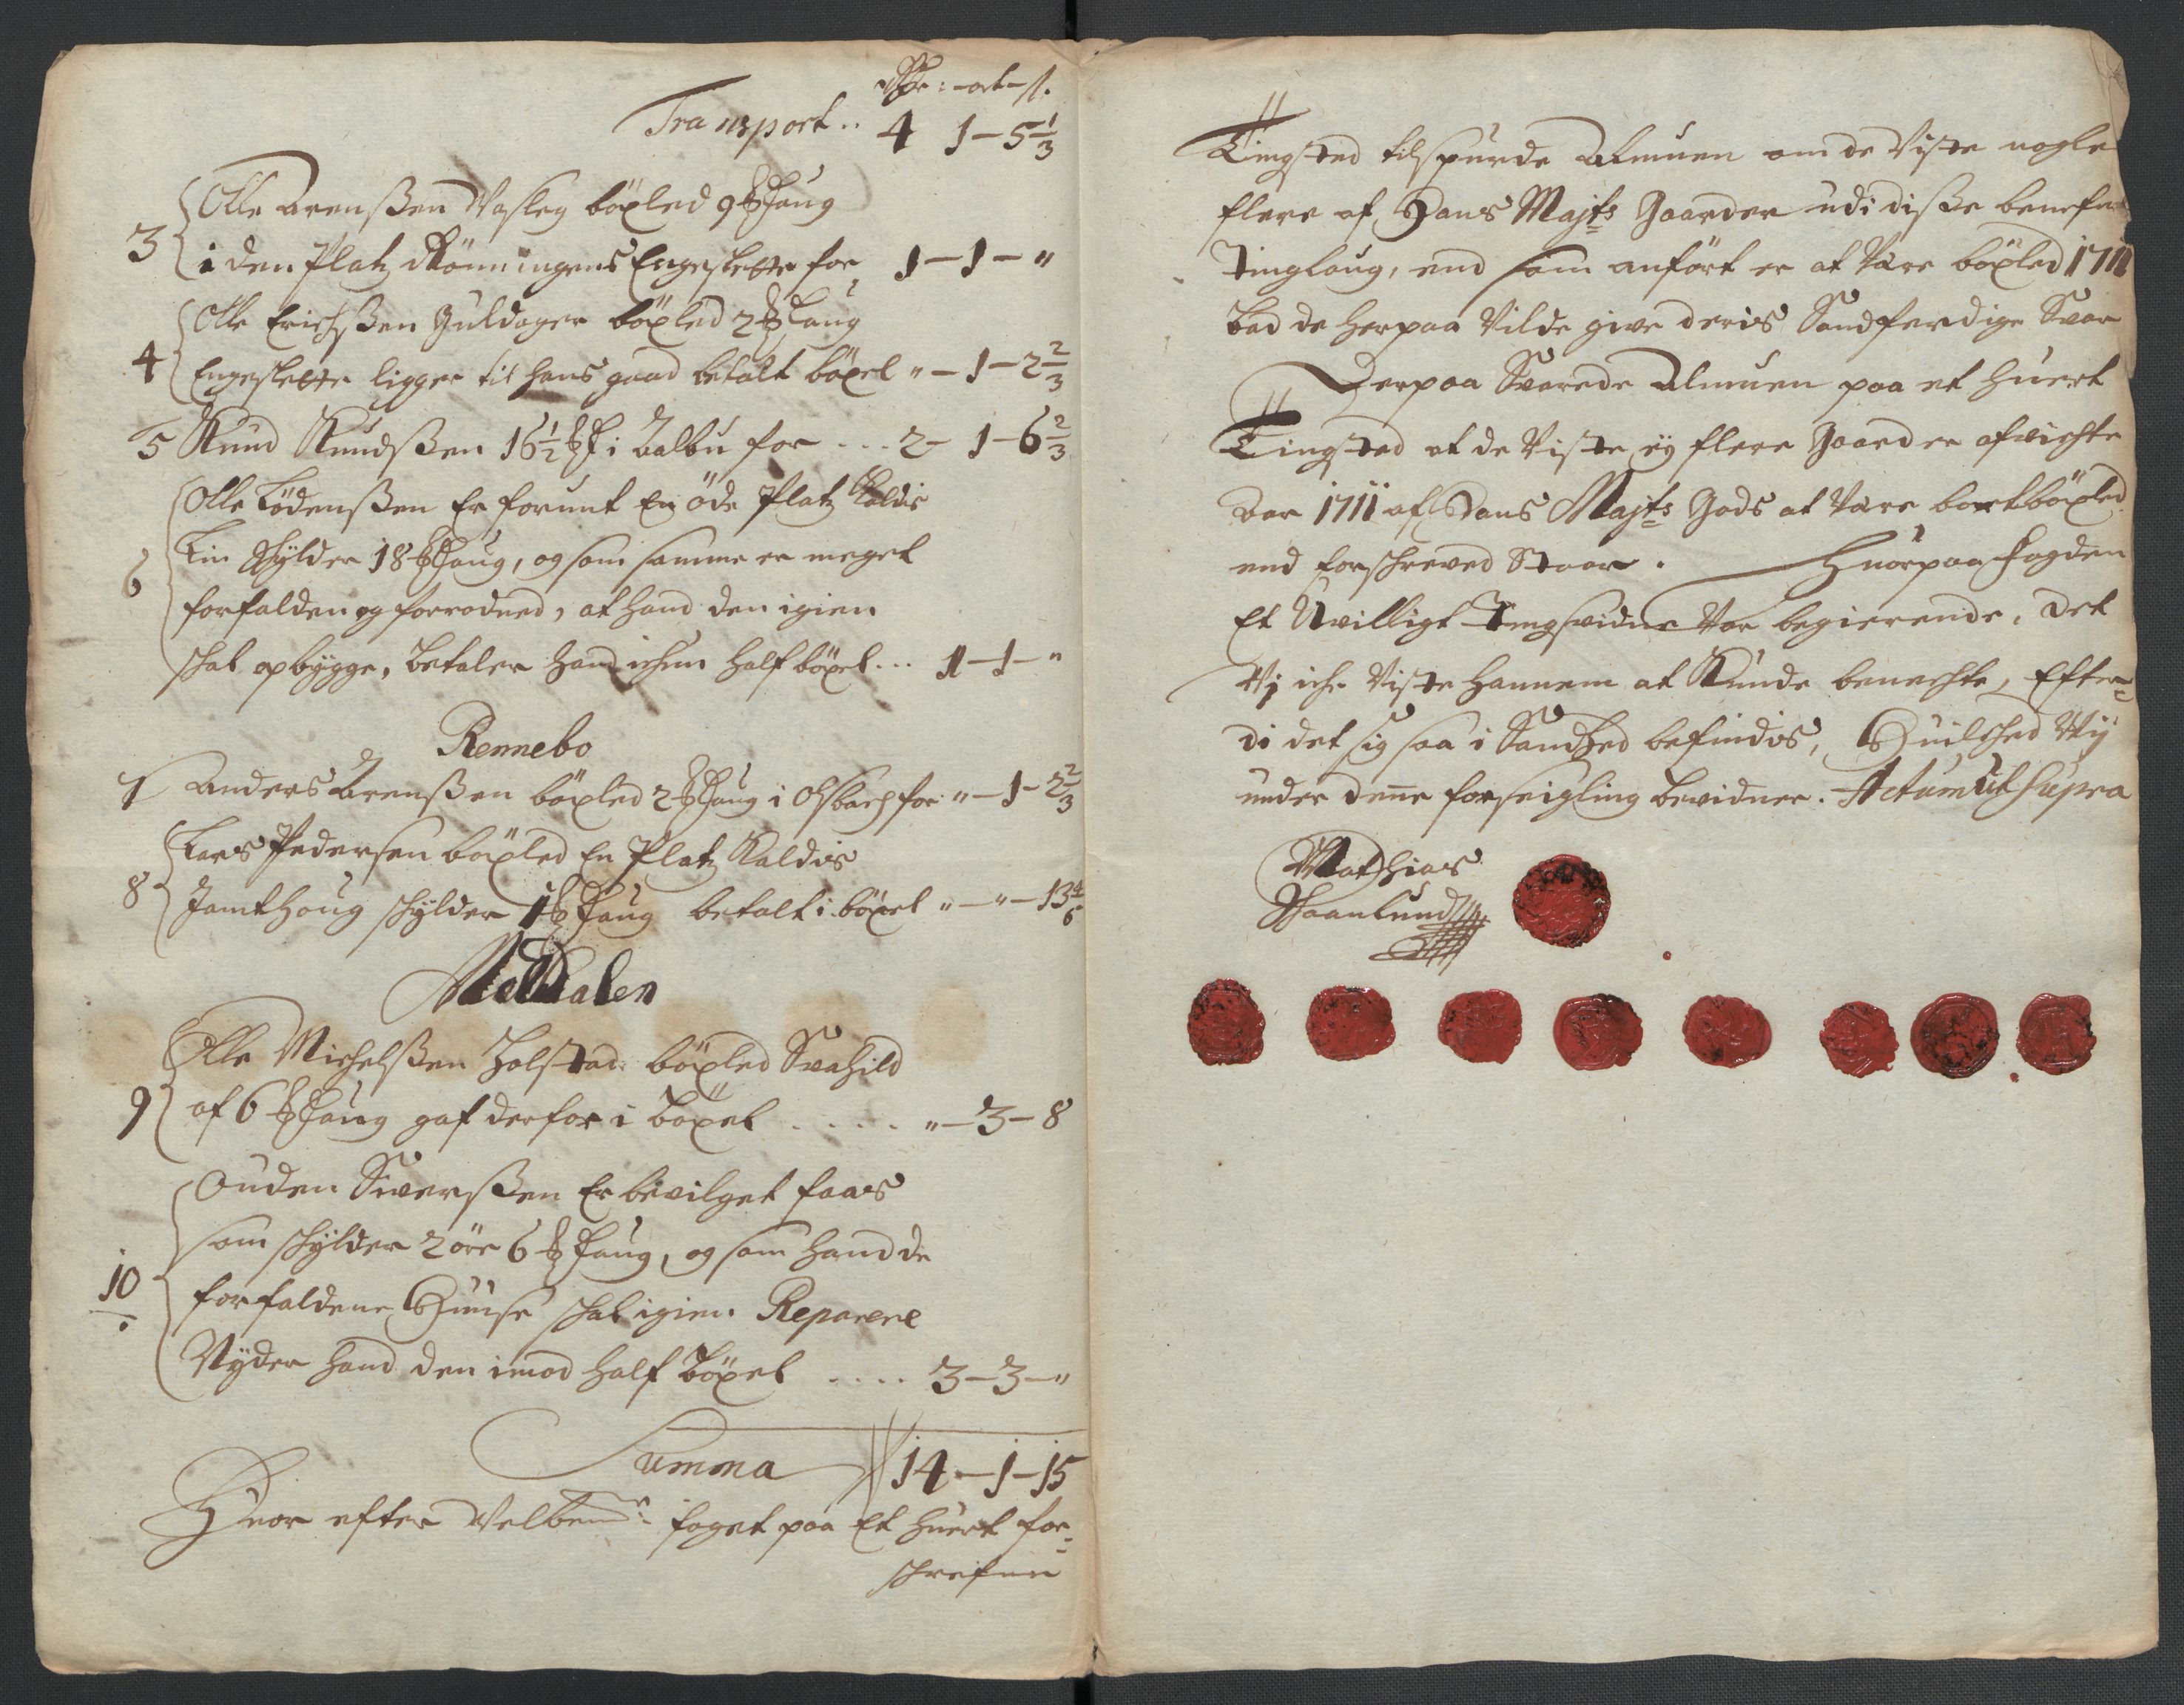 Rdr: - ort - s.
Transport .. 4 1 - 5 1/3
3 Olle Arenßen Wasley böxled 9 Laug
i den Platz Rönningens Engeslette for 1 - 1 - "
Olle Erichßen Guldager böxled 2 Laug
4 Engeslette ligger til hans gaard betalt böxel " - 1 - 2 2/3
5 Knud Knudßen 16 1/2 i Balbu for ... 2 - 1 - 6 2/3
Olle Lödenßen Er forunt En öde Platz Kaldis
6 Lin schylder 18 Laug, og som samme er meget
forfalden og forrodned, at hand den igien
schal opbygge, betaler hand ichun half böxel ... 1 - 1 - "
Rennebo
7 Anders Arenßen böxled 2 Laug i Olsbach for " - 1 - 2 2/3
Lars Pedersen böxled En Platz Kaldis
8 Jamthoug schylder 1 Laug betalt i böxel " - " - 13 4/6
Meldalen
Olle Michelßen Holstad böxled Svahild
9 af 6 Laug gaf derfor i böxel . . . . " - 3 - 8
Ouden Siverßen Er bevilget faas
som schylder 2 öre 6 Laug, og som hand de
10 forfaldene Huuse schal igien Reparere
Nyder hand den imod half böxel .... 3 - 3 - "
Summa 14 - 1 - 15
Huor efter Velbem:te foget paa Et huert for-
schrefne
Tingsted tilspurde Almuen om de Viste nogle
flere af Hans Majts Gaarder udi diße benefnte
Tinglaug, end som anfört er at være böxled 1711
bad de herpaa Vilde give deris Sandferdige Svar
Derpaa Svarede Almuen paa et huert
Tingsted at de Viste ey flere Gaarder afvichte
Aar 1711 af Hans Majts Gods at være bortböxled
end forschreved Staar. Huorpaa fogden
Et Uvilligt Tingsvidne var begierende, det
Vi iche Viste hannem at Kunde benechte, Efter-
di det sig saa i Sandhed befindis, Huilched Vy
under denne forseigling bevidner. Actum Ut Supra
Mathias
Schaanlund